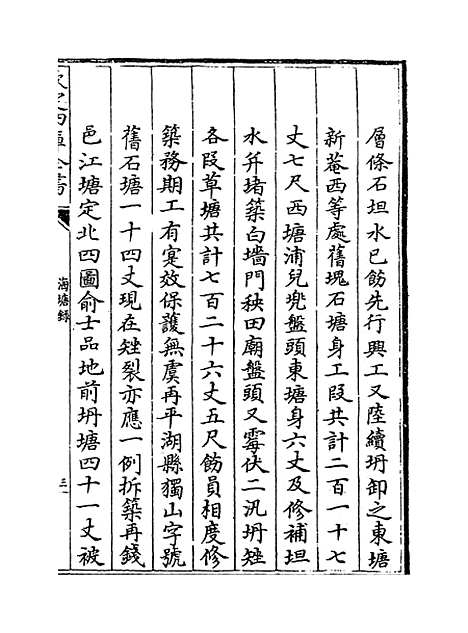 層條石坦水已飭先行興工又陸續坍卸之東塘
新菴西等處舊塊石塘身工段共計二百一十七
丈七尺西塘浦兒兠盤頭東塘身六丈及修補坦
水并堵築白墻門秧田廟盤頭又霉伏二汛坍矬
各段草塘共計七百二十六丈五尺飭員相度修
築務期工有寔效保護無虞再平湖縣獨山字號
舊石塘一十四丈現在矬裂亦應一例拆築再錢
邑江塘定北四圖俞士品地前坍塘四十一丈被
欽定四庫全書
海塘録
三